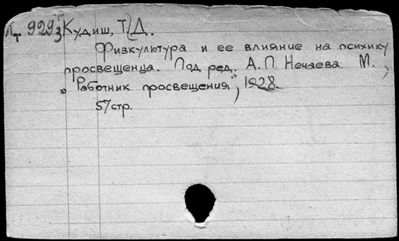 Кудиш, Т. Д.
Физкультура и ее влияние на психику
просвещенца. Под ред. А. П. Нечаева. М.,
„Работник просвещения", 1928.
57 стр.